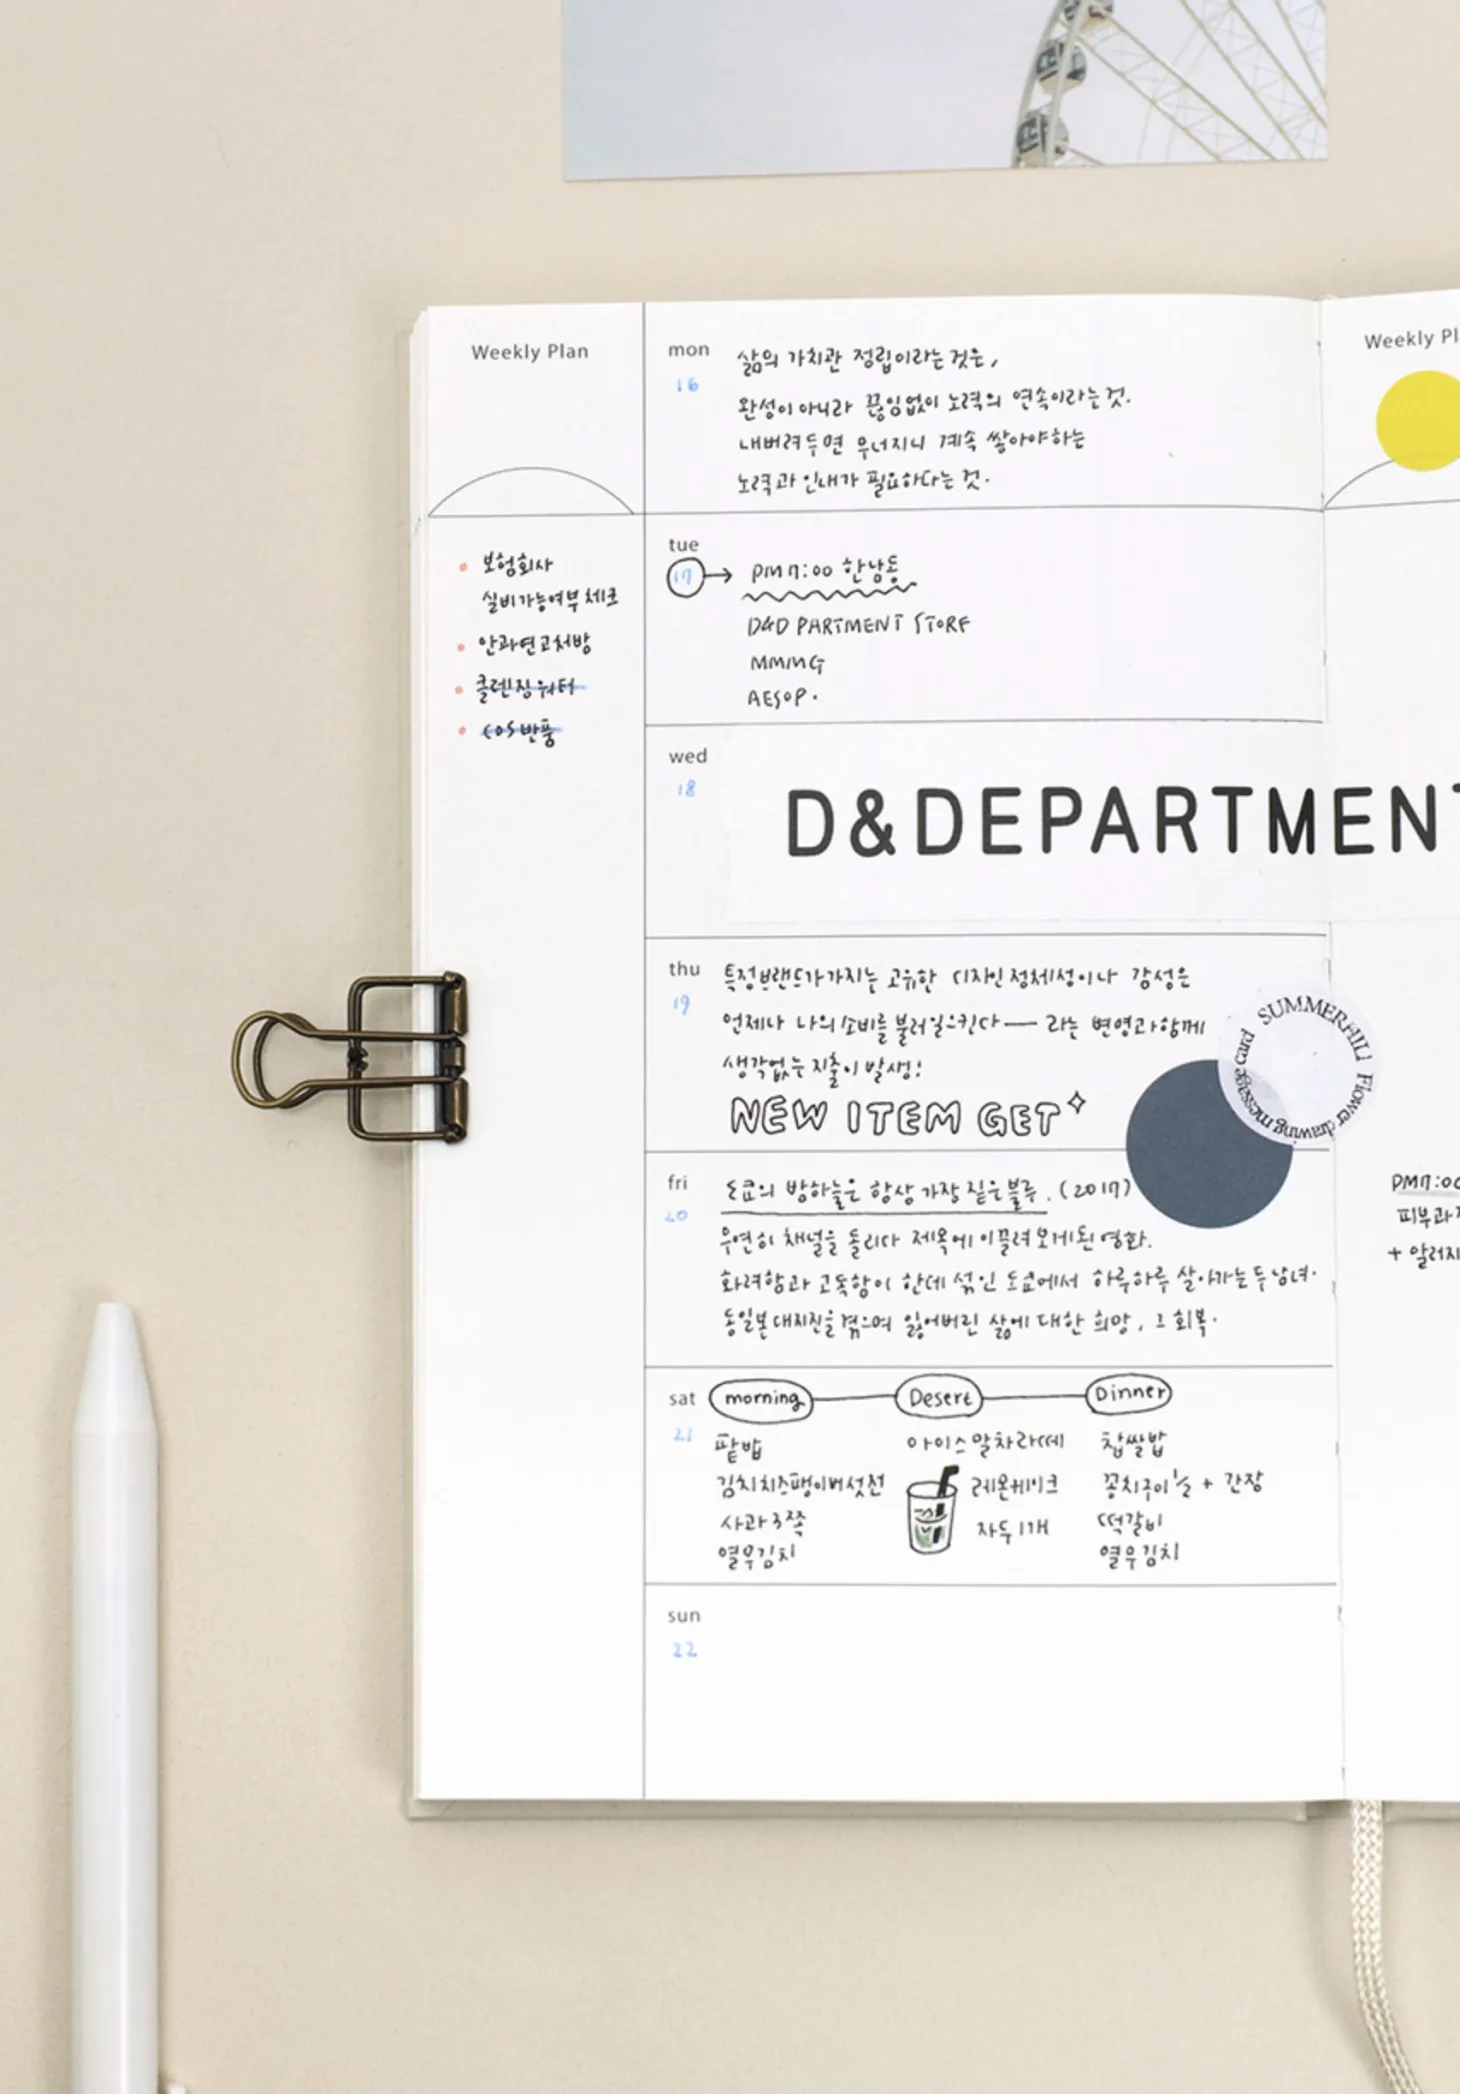 Weekly Plan
보험회사
실비가능여부체크
안과연고처방
클렌징워터
COS반품
mon
16
삶의 가치관 정립이라는것은,
완성이 아니라 끊임없이 노력의 연속이라는것.
내버려두면 무너지니 계속 쌓아야하는
노력과 인내가 필요하다는것.
tue
17
PM 7:00 한남동
D&D PARTMENT STORE
MMMG
AESOP.
wed
18
D&DEPARTMENT
thu
19
특정브랜드가가지는 고유한 디자인정체성이나 감성은
언제나 나의소비를불러일으킨다 — 라는 변명과함께
생각없는지출이발생!
NEW ITEM GET
SUMMERHILL Flower drawing message card
fri
20
도쿄의 밤하늘은 항상 가장 짙은블루. (2017)
우연히 채널을 돌리다 제목에이끌려보게된영화.
화려함과 고독함이 한데 섞인 도쿄에서 하루하루 살아가는두남녀.
동일본대지진을겪으며 잃어버린 삶에 대한 희망, 그 회복.
sat
21
morning
팥밥
김치치즈팽이버섯전
사과3쪽
열무김치
Desert
아이스말차라떼
레몬케이크
자두1개
Dinner
찹쌀밥
꽁치구이1/2 + 간장
떡갈비
열무김치
sun
22
Weekly Pl
PM7:00
피부과
+ 알러지